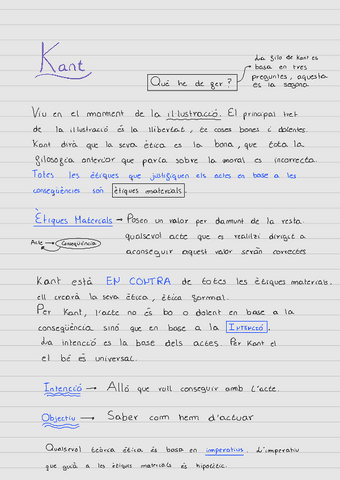 Kant
La filo de Kant es
basa en tres
preguntes, aquesta
és la segona.
Què he de fer?
Viu en el moment de la il·lustració. El principal tret
de la il·lustració és la llibertat, té coses bones i dolentes.
Kant dirà que la seva ètica és la bona, que tota la
filosofia anterior que parla sobre la moral és incorrecta.
Totes les ètiques que justifiquen els actes en base a les
conseqüències són ètiques materials.
Ètiques Materials → Posen un valor per damunt de la resta.
qualsevol acte que es realitzi dirigit a
aconseguir aquest valor seràn correctes
Acte → Conseqüència
Kant està EN CONTRA de totes les ètiques materials.
ell crearà la seva ètica, ètica formal.
Per Kant, l'acte no és bo o dolent en base a la
conseqüència sinó que en base a la INTENCIÓ.
La intenció és la base dels actes. Per Kant el
el bé és universal.
Intenció → Alló que vull conseguir amb l'acte.
Objectiu → Saber com hem d'actuar
Qualsevol teòrca ètica és basa en imperatius. L'imperatiu
que guia a les ètiques materials és hipotètic.